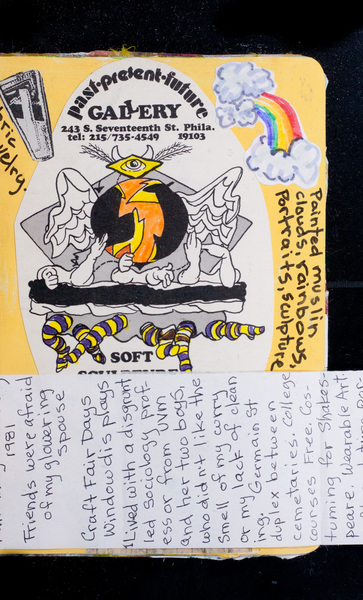 past-present-future
GALLERY
243 S. Seventeenth St. Phila.
tel: 215/735-4549 19103
SOFT
Painted muslin
clouds, rainbows,
portraits, sculpture
1981
Friends were afraid
of my glowering
spouse
Craft Fair Days
Window displays
I Lived with a disgrunt
led Sociology prof-
essor from UVM
and her two boys,
who didn't like the
smell of my curry
or my lack of clean
ing. Germain St
duplex between
cemetaries. College
courses Free. Cos-
tuming for Shakes-
peare. Wearable Art